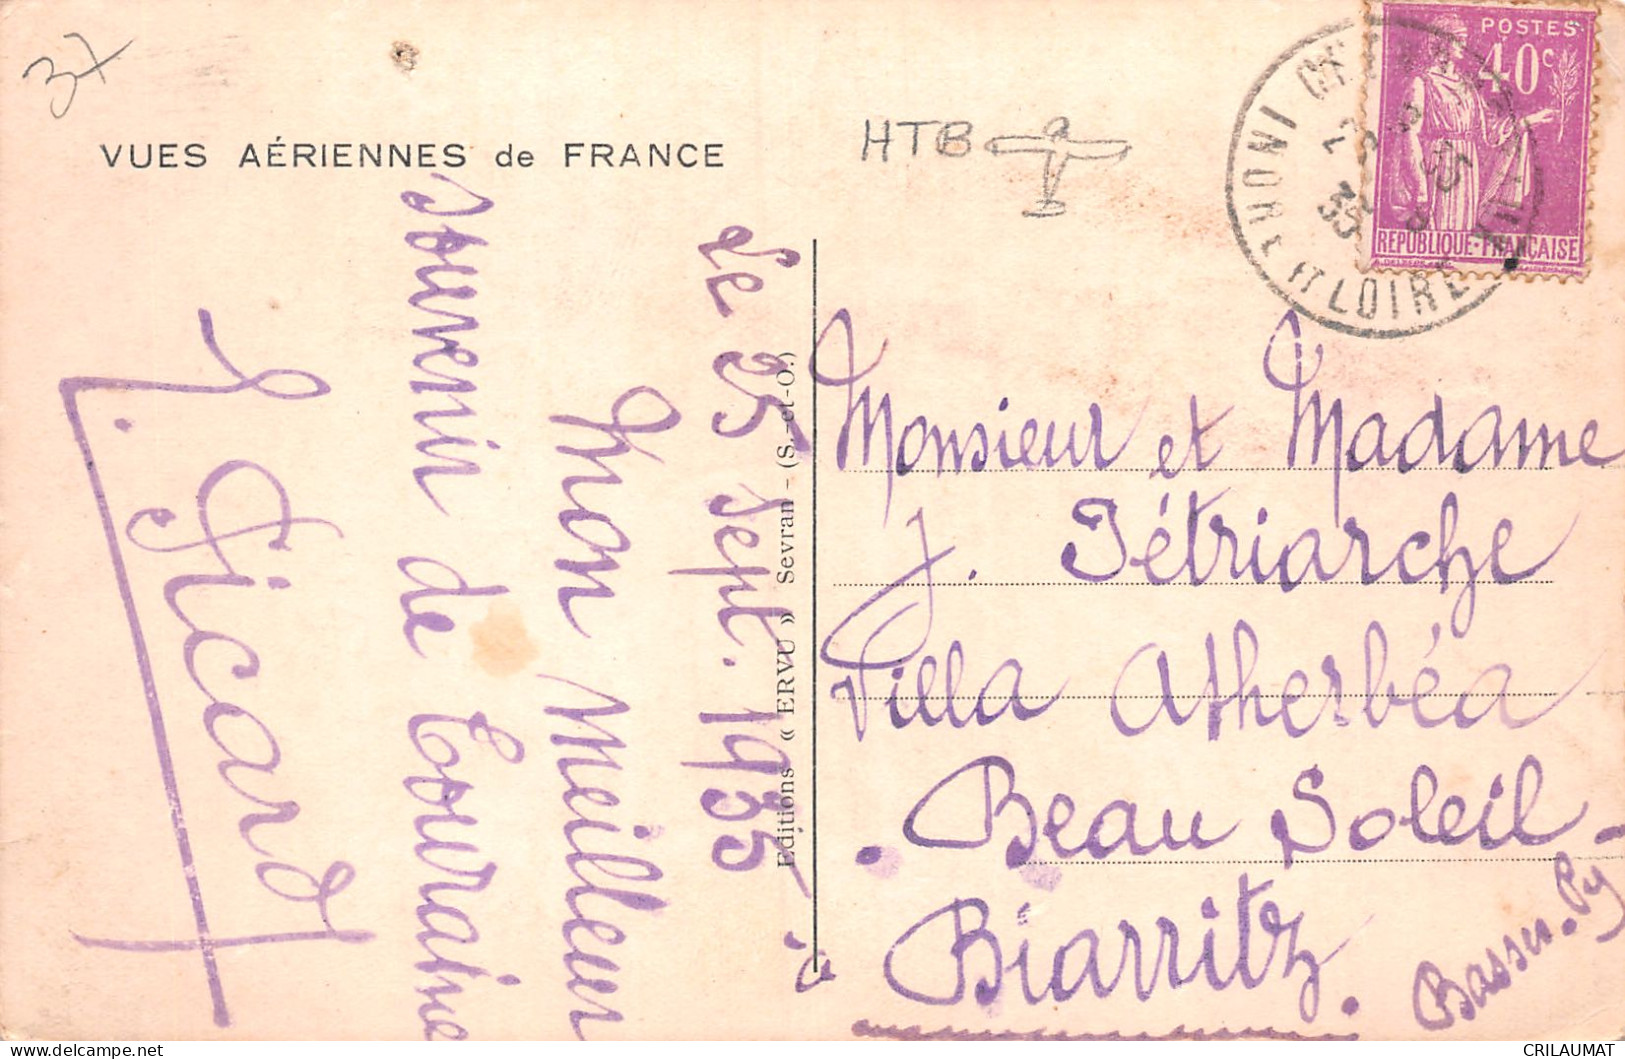 37
VUES AÉRIENNES de FRANCE
HTB
POSTES
40c
RÉPUBLIQUE-FRANÇAISE
INDRE ET LOIRE
35
Le 25 Sept. 1935
Mon Meilleur
souvenir de Touraine
Sicard
Editions « ERVU » Sevran - (S.-et-O.)
Monsieur et Madame
J. Pétriarche
Villa Atherbéa
Beau Soleil -
à Biarritz.
Basses-Py
CRILAUMAT